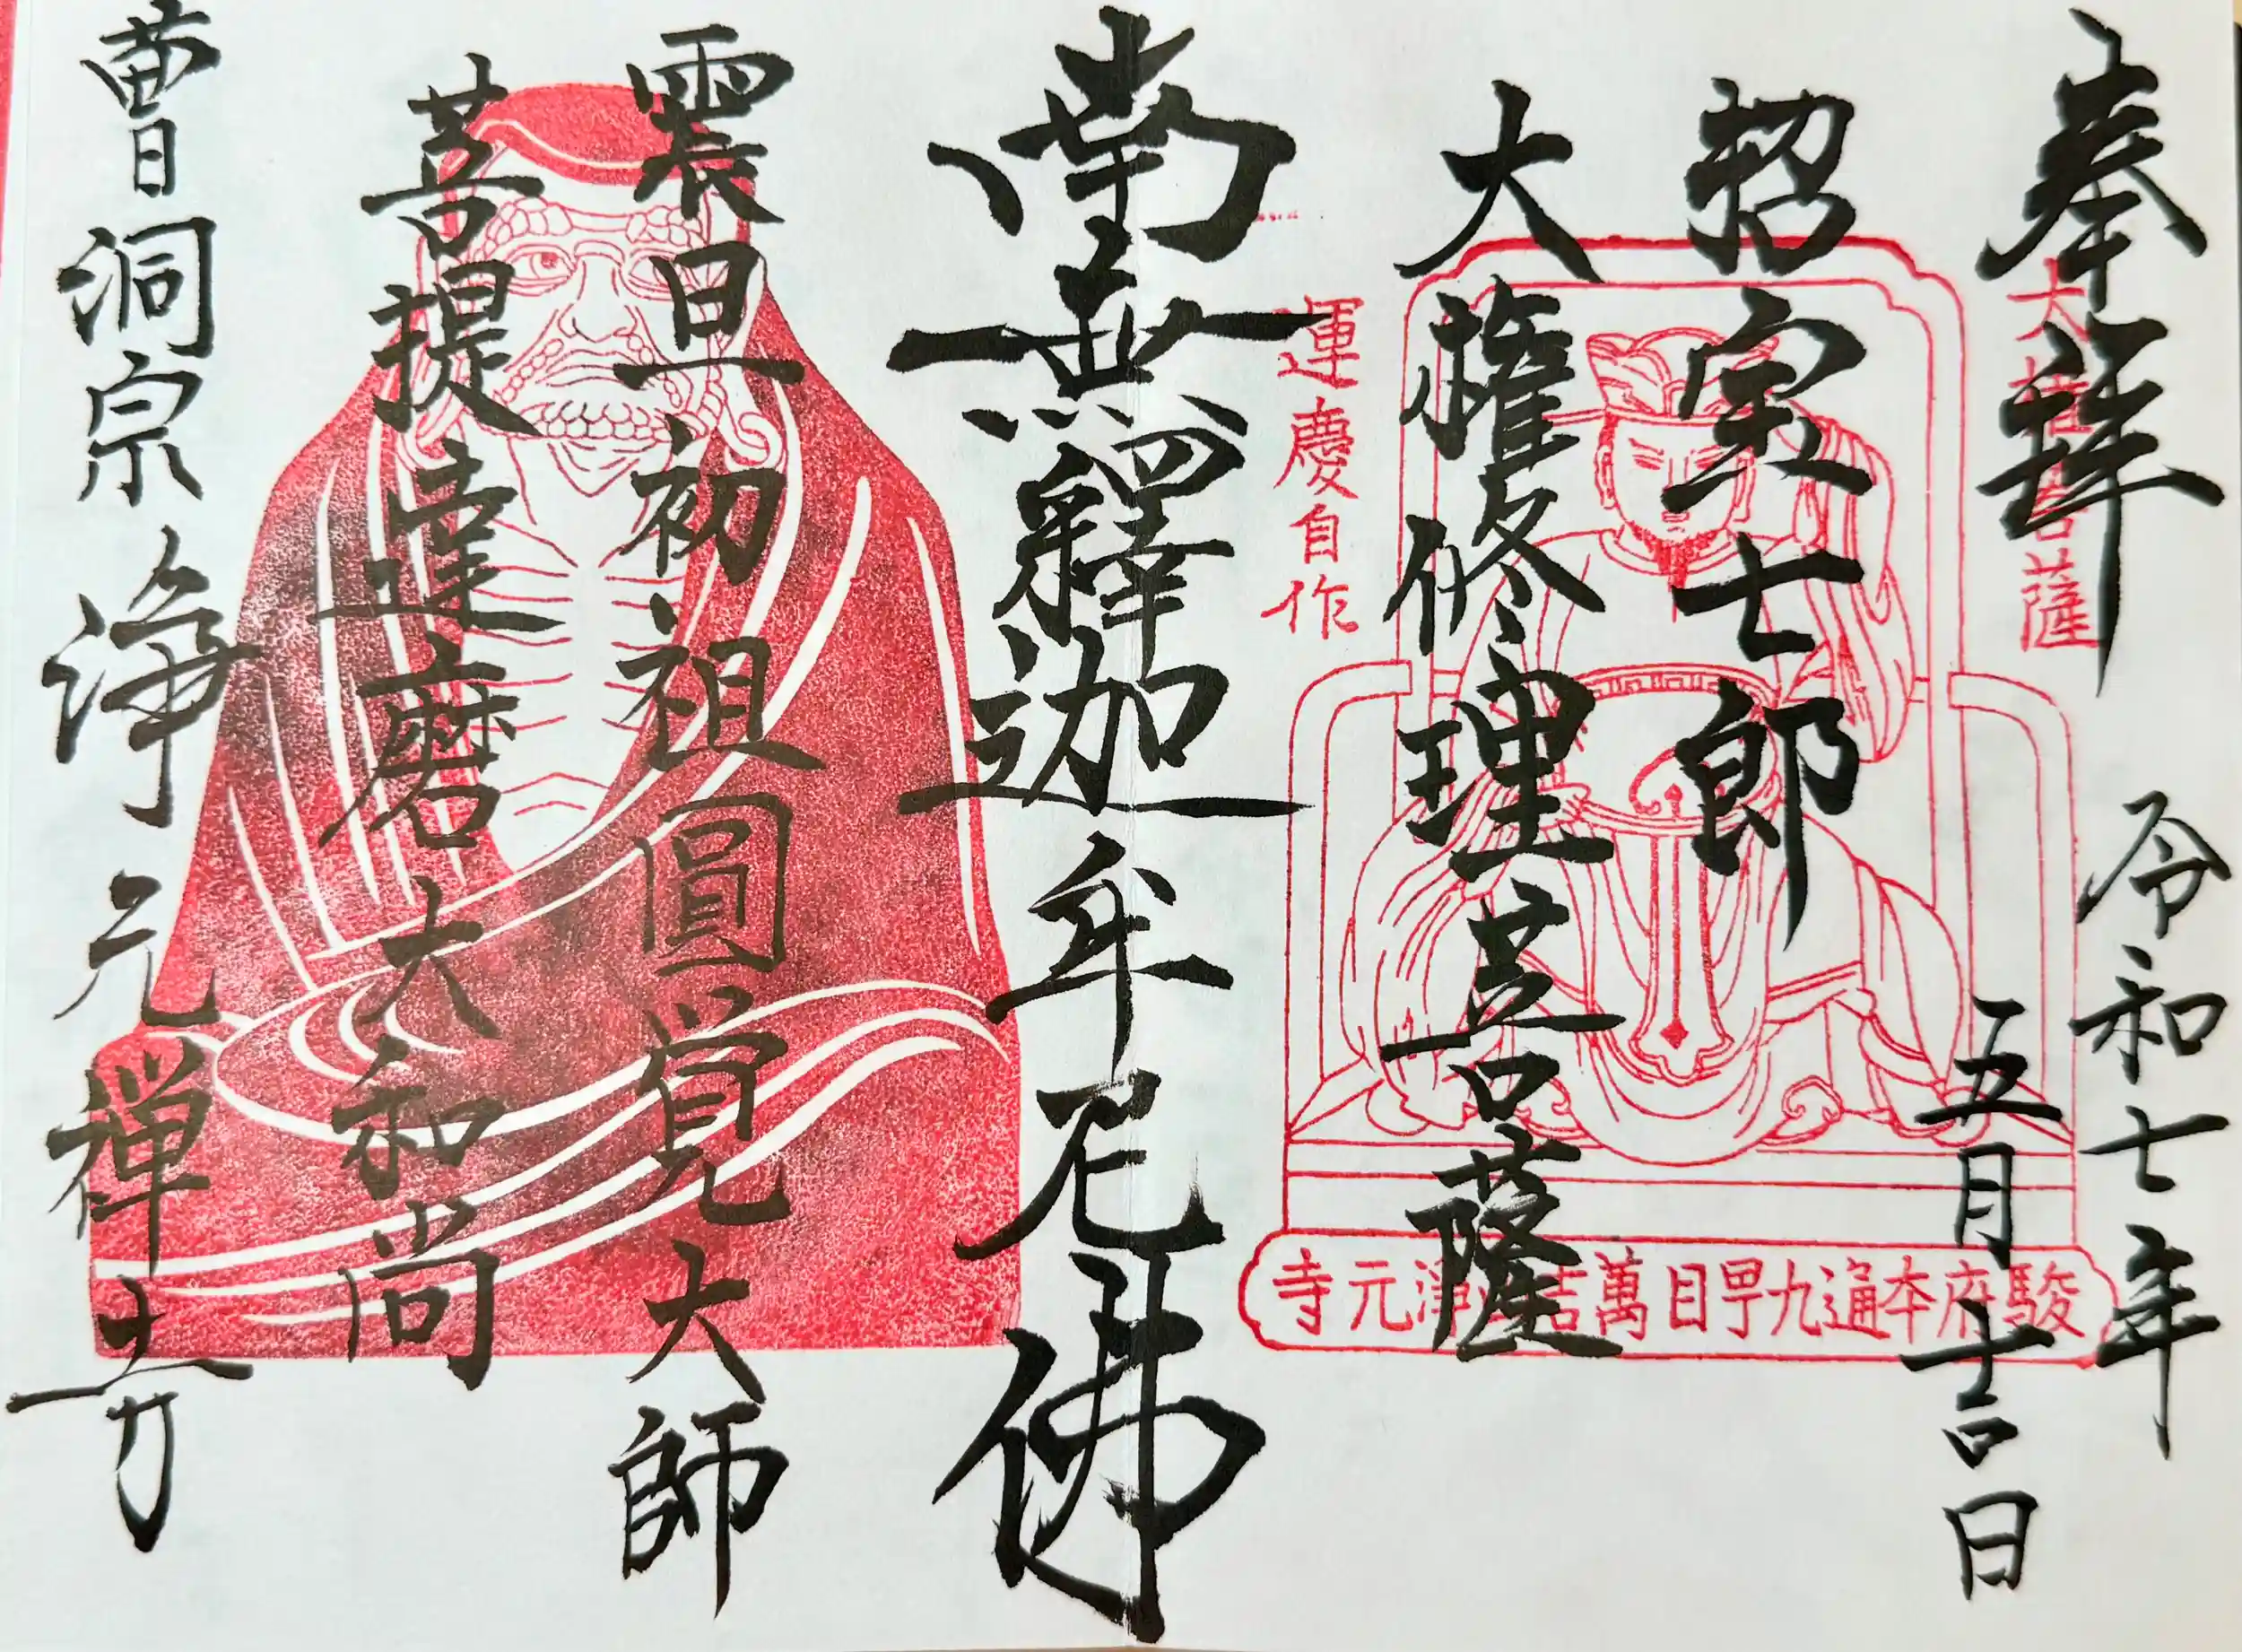 奉拜
令和七年
五月 日
大権菩薩
招宝七郎
大權修理菩薩
運慶自作
駿府本通九甼目萬吉 淨元寺
南無釋迦牟尼佛
震旦初祖圓覚大師
菩提達磨大和尚
曹洞宗 浄元禅寺